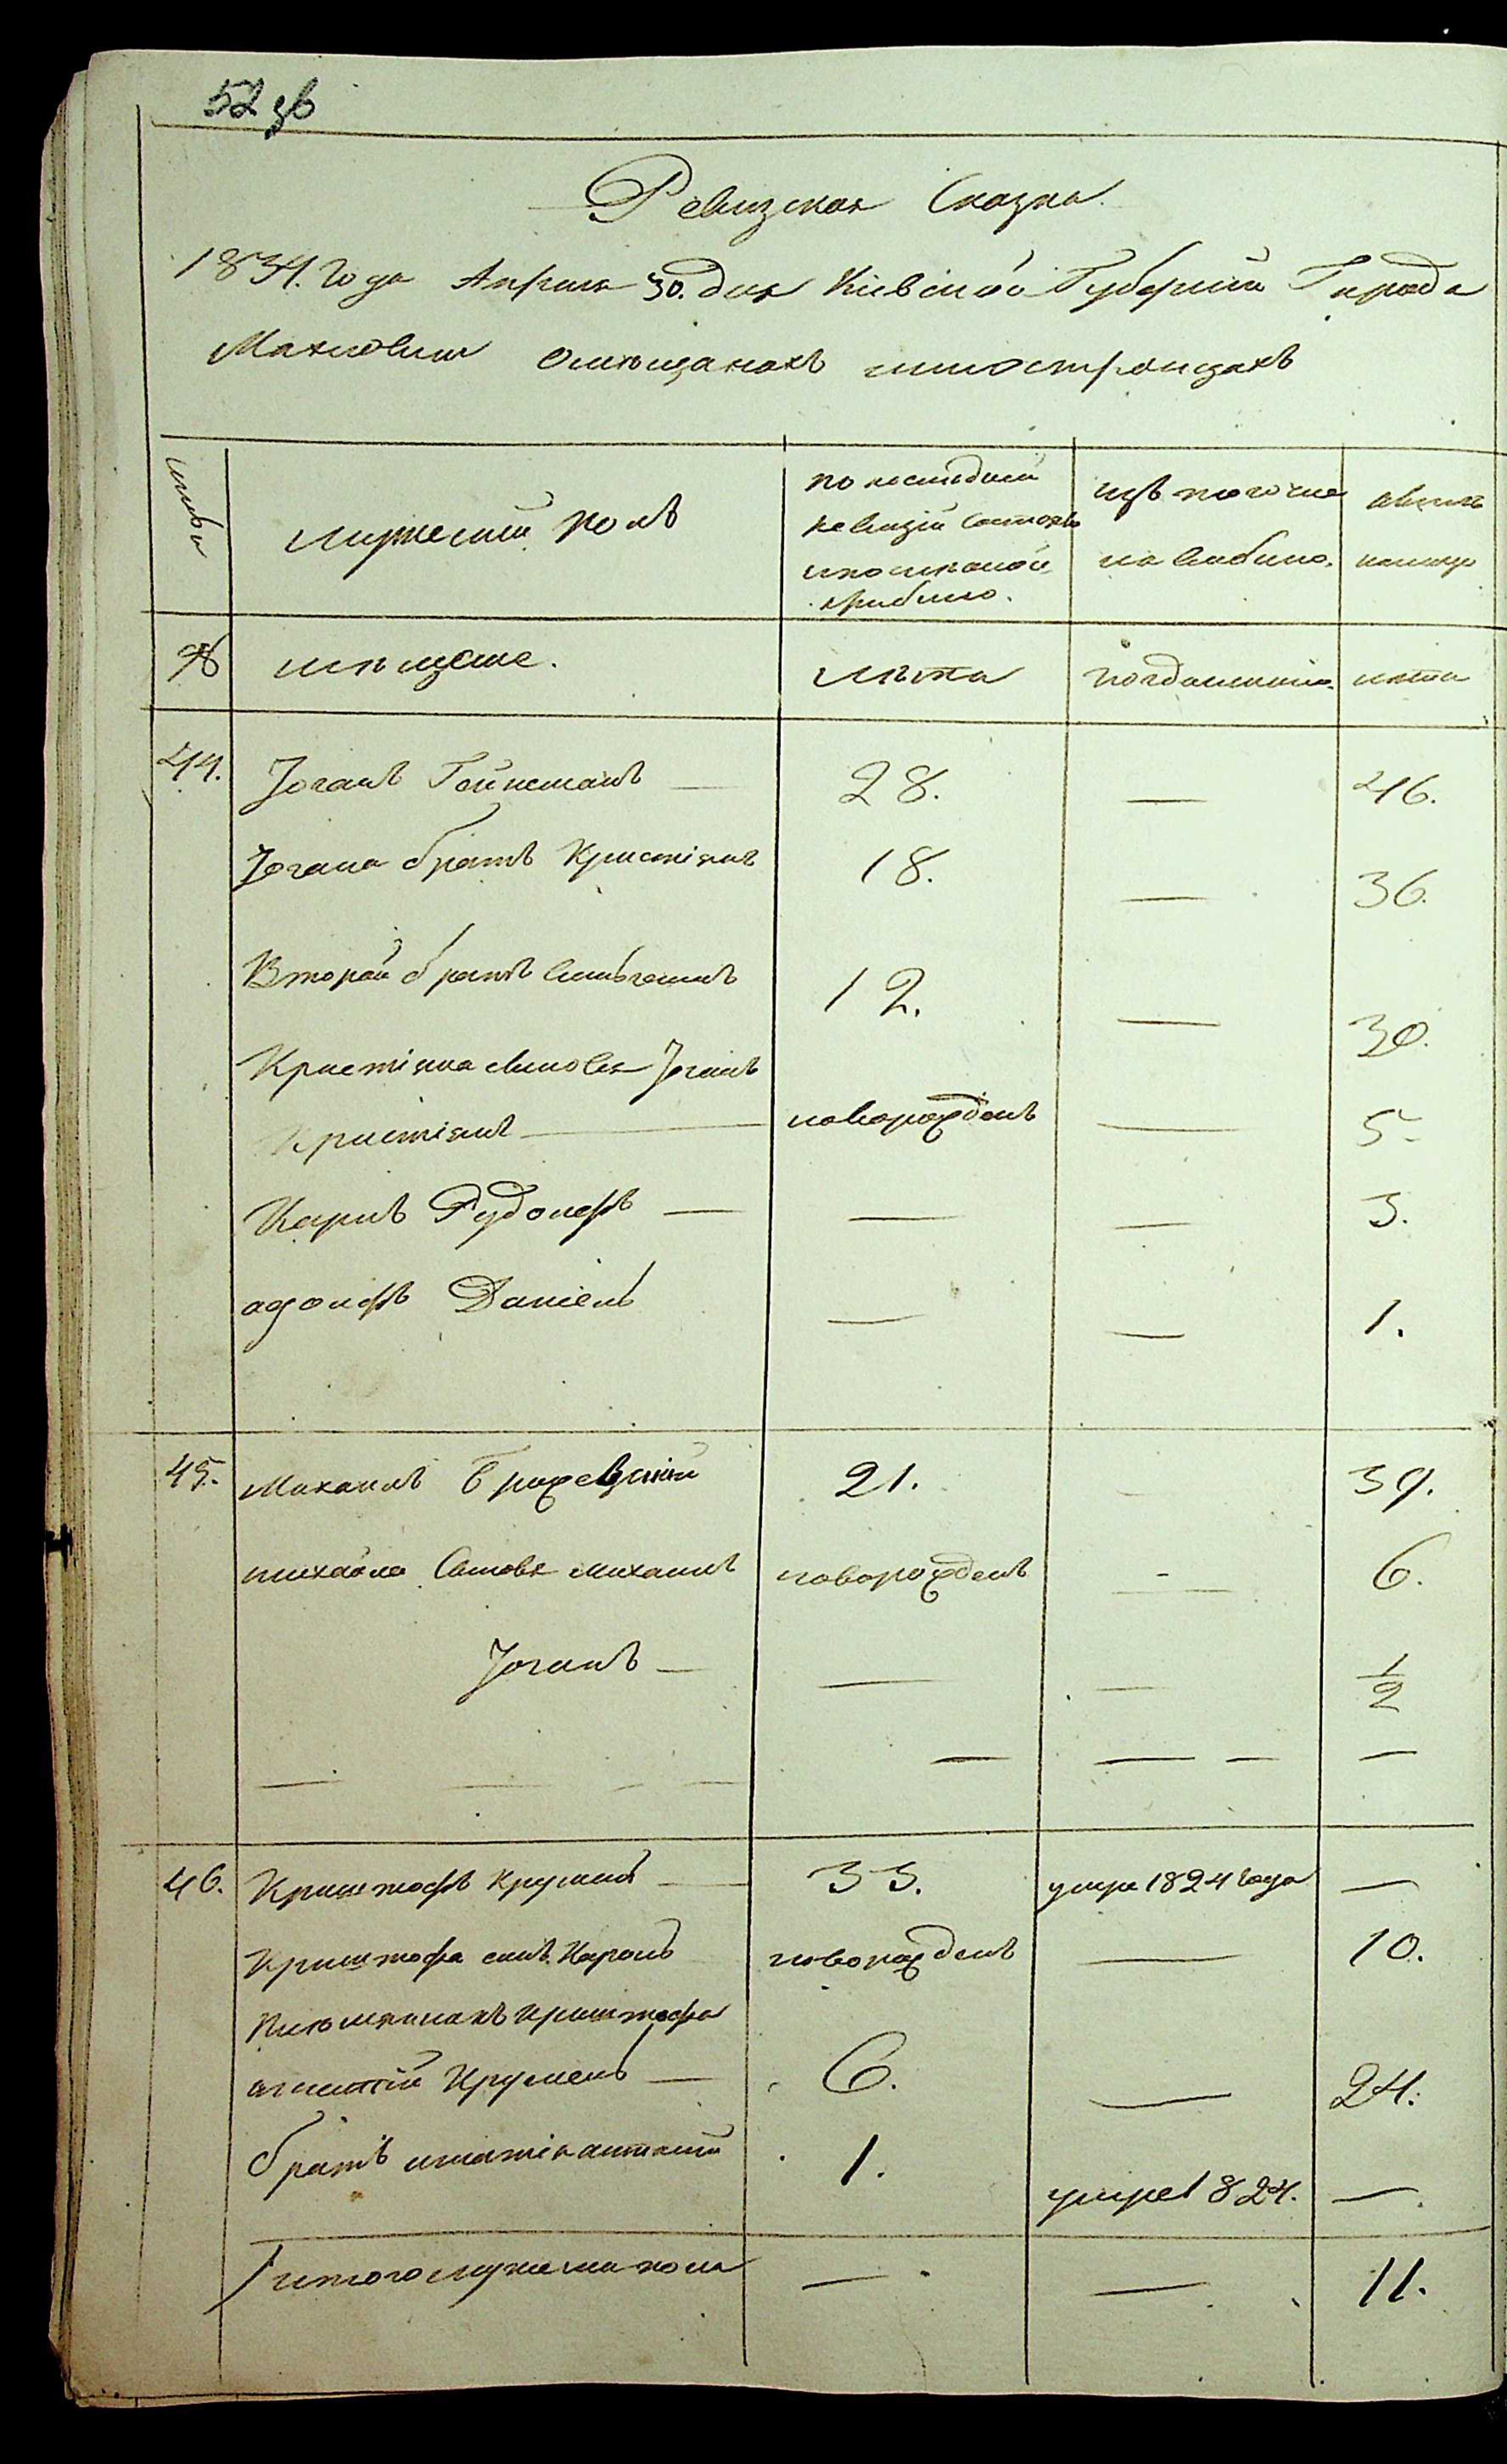 52 зв
Ревизская Сказка.
1834. Года Апреля 30. дня Кіевской Губерніи Города
Махновки О мещанахъ иностранцахъ
Семьи
мужеский полъ
по последней
ревизіи состояло
и после оной
прибыло.
изъ того числа
выбыло.
ныне
налицо
№
мещане.
лета
когда именно.
лета
44.
Іоганъ Гейнеманъ — 28. — 46.
Іогана братъ Кристіянъ 18. — 36.
Второй братъ Вильгельмъ 12. — 30.
Кристіяна сыновья Іоганъ
Кристіянъ — новорожденъ — 5.
Карлъ Рудольфъ — — — 3.
адольфъ Даніель — — 1.
45. Михаилъ 21. 39.
михайла Сыновья михаилъ новорожденъ — 6.
Іоганъ — — — 1/2
— — — — — — — —
46. Криштофъ Крумель — 33. умре 1824 года —
Криштофа сынъ Кароль новорожденъ — 10.
Племянникъ Криштофа
Крумель — 6. — 24.
братъ 1. умре 1824. —
Итого мужеска пола — — 11.